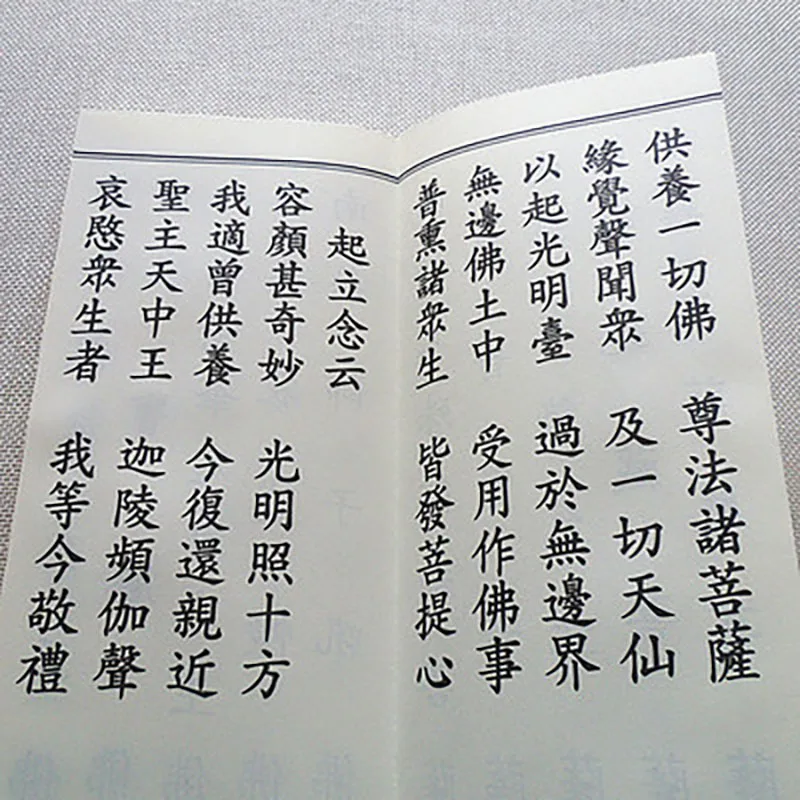 供養一切佛　尊法諸菩薩
緣覺聲聞衆　及一切天仙
以起光明臺　過於無邊界
無邊佛土中　受用作佛事
普熏諸衆生　皆發菩提心
起立念云
容顏甚奇妙　光明照十方
我適曾供養　今復還親近
聖主天中王　迦陵頻伽聲
哀愍衆生者　我等今敬禮